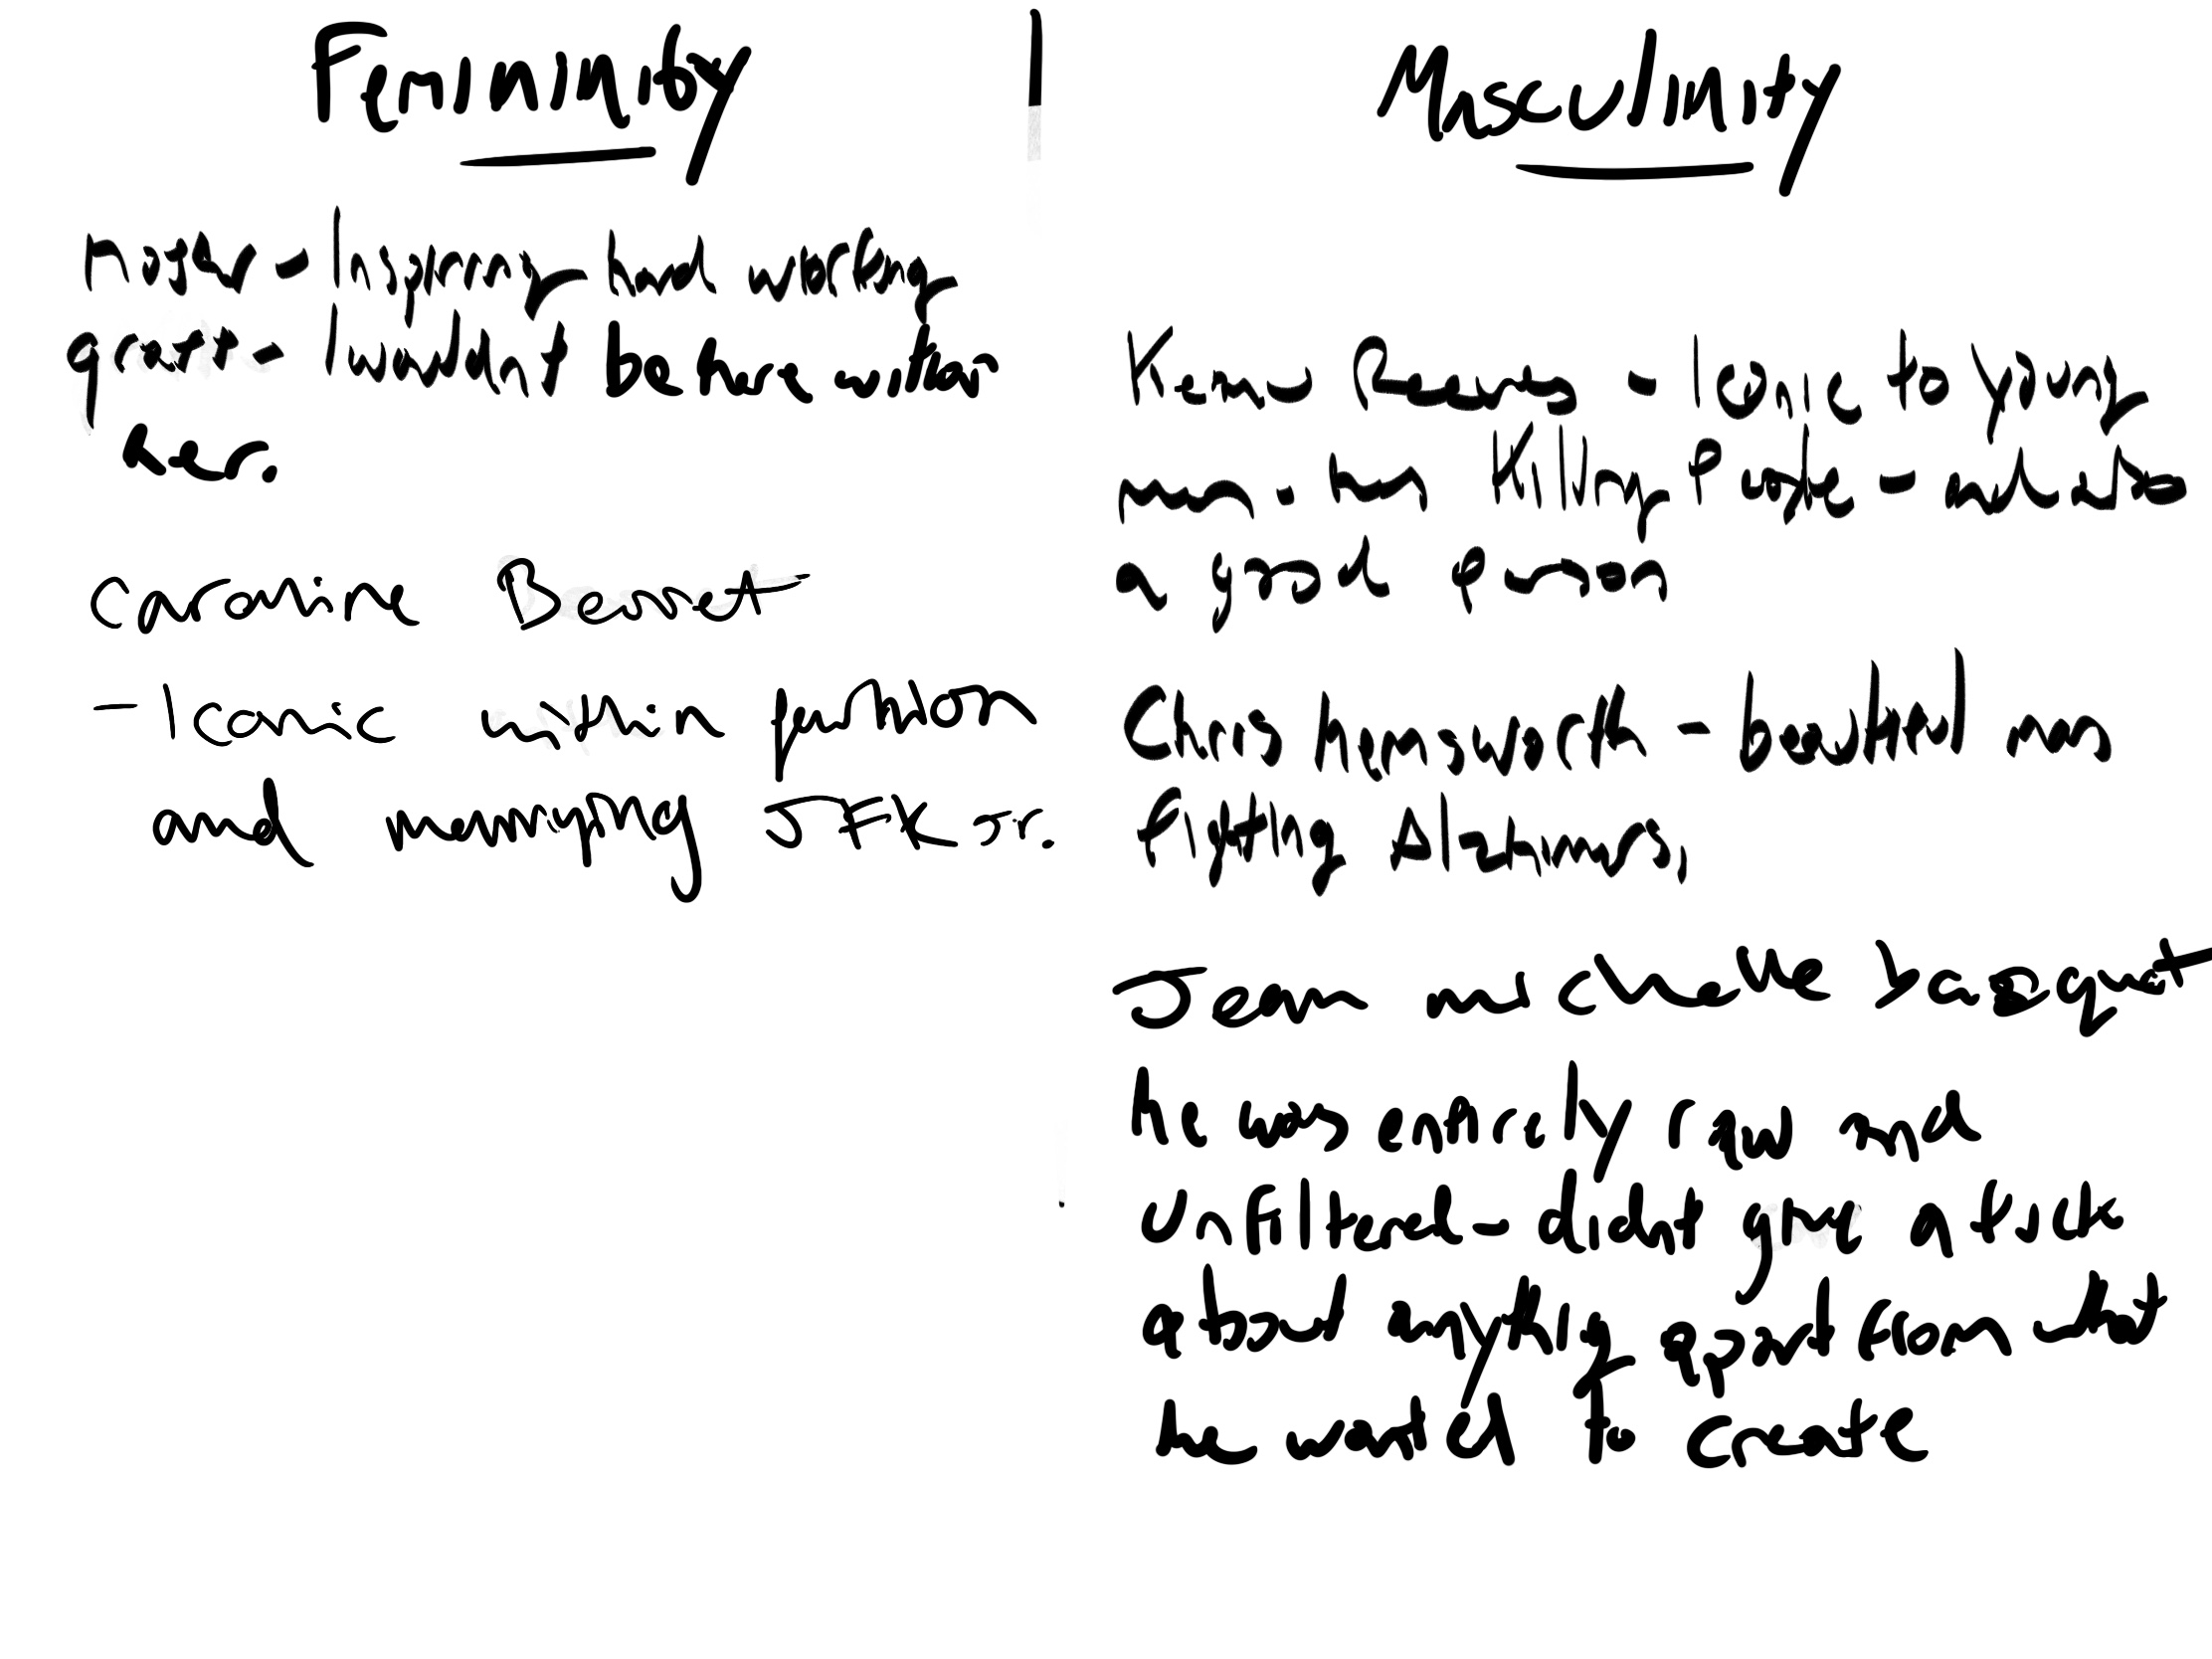 Femininity
Inspiring hard working
I wouldnt be here without
her.
Caroline Besset
- Iconic within fashion
and marrying JFK Jr.
Masculinity
Keanu Reeves - Iconic to young
men - has Killing People - and also
a good person
Chris Hemsworth - beautiful man
fighting Alzhimers,
Jean michelle basquat
he was entirely raw and
unfiltered - didnt give a fuck
about anything apart from what
he wanted to create